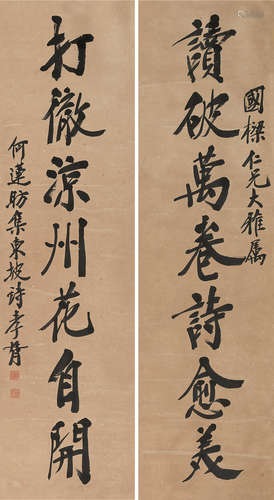 國樑仁兄大雅属
讀破萬卷詩愈美
打徹涼州花自開
何蓮舫集東坡詩孝胥